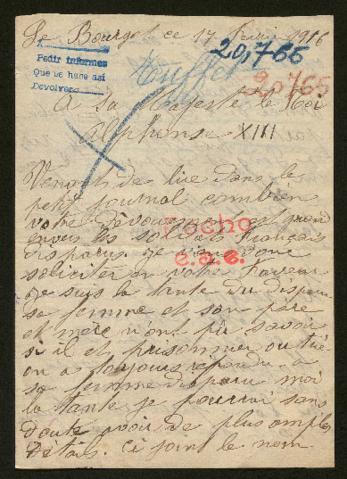 Le Bourg ce 17 février 1916
20,765
Pedir informes
Que se hace así
Devolvers
Truffet
20,765
A sa Majesté le Roi
Alphonse XIII
Venant de lire dans le
petit journal combien
votre dévouement est grand
envers les soldats français
disparus. Je viens donc
soliciter en votre faveur
Je suis la tante du disparu
sa femme et son père
et mère n'ont pu savoir
si il et prisonnier ou tué
on a toujours répondu a
sa femme disparu moi
la tante je pourrai sans
doute avoir de plus amples
détails. Ci joint le nom
Hecho
c.a.c.